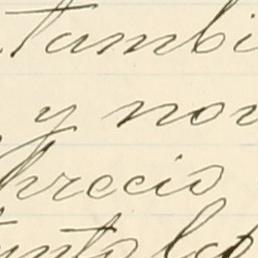 tambi
y nov
Precio